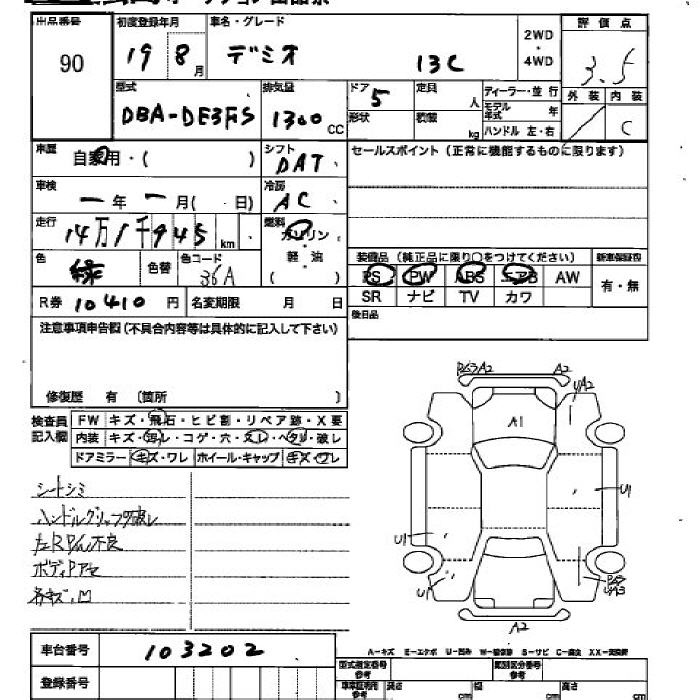 出品番号 初度登録年月 車名・グレード 2WD・4WD 評価点
90 19 8月 デミオ 13C 3.5
型式 排気量 ドア 定員 ディーラー・並行 外装 内装
DBA-DE3FS 1300CC 5 人 モデル年式 年
形状 積載 kg ハンドル 左・右 C
車歴 自家用・( ) シフト DAT セールスポイント(正常に機能するものに限ります)
車検 一年一月( 日) 冷房 AC
走行 14万1千945km 燃料 ガソリン・軽油( )
色 緑 色替 色コード 36A 装備品(純正品に限り○をつけてください) 新車保証書
PS PW ABS エアB AW 有・無
R券 10410円 名変期限 月 日 SR ナビ TV カワ
注意事項申告欄(不具合内容等は具体的に記入して下さい) 後日品
修復歴 有 (箇所 )
検査員記入欄 FW キズ・飛石・ヒビ割・リペア跡・X要
内装 キズ・汚レ・コゲ・穴・スレ・ヘタリ・破レ
ドアミラー キズ・ワレ ホイール・キャップ キズ・ワレ
A2 A2
A2
A1
シートシミ
U1
ハンドルグリップ破レ
U1
左RP/W不良
ボディPアセ
各キズ、凹
U1
A2
車台番号 103202
A-キズ E-エクボ U-凹み W-補修跡 S-サビ C-腐食 XX-交換済
登録番号 型式指定番号 参考 類別区分番号 参考
車庫証明用 参考 長さ cm 幅 cm 高さ cm